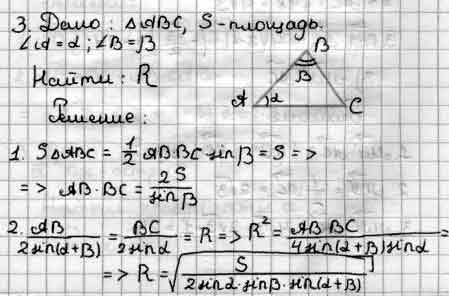 3. Дано: △ABC, S-площадь.
∠α=α; ∠B=β
Найти: R
B
β
A α C
Решение:
1. S△ABC = 1/2 AB·BC·sinβ = S =>
=> AB·BC = 2S/sinβ
2. AB/2sin(α+β) = BC/2sinα = R => R² = AB·BC/4sin(α+β)sinα =
=> R = √(S/2sinα·sinβ·sin(α+β))